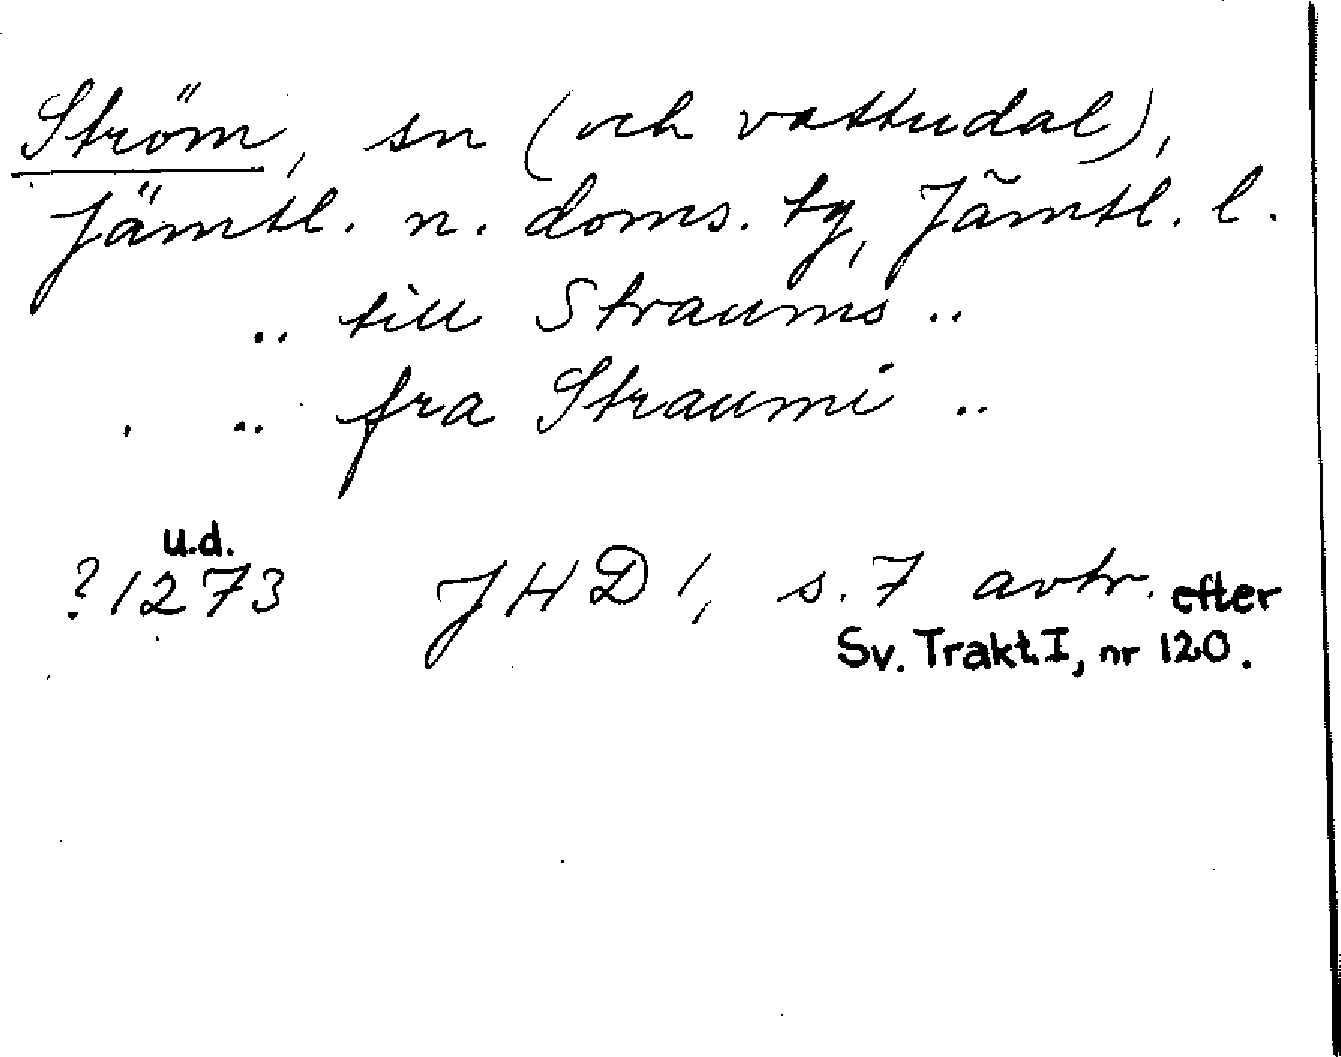 Ström, sn (och vattudal),
Jämtl. n. doms. tg, Jämtl. l.
.. till Straums ..
.. fra Straumi ..
u.d.
?1273 JHD 1, s. 7 avtr. efter
Sv. Trakt. I, nr 120.